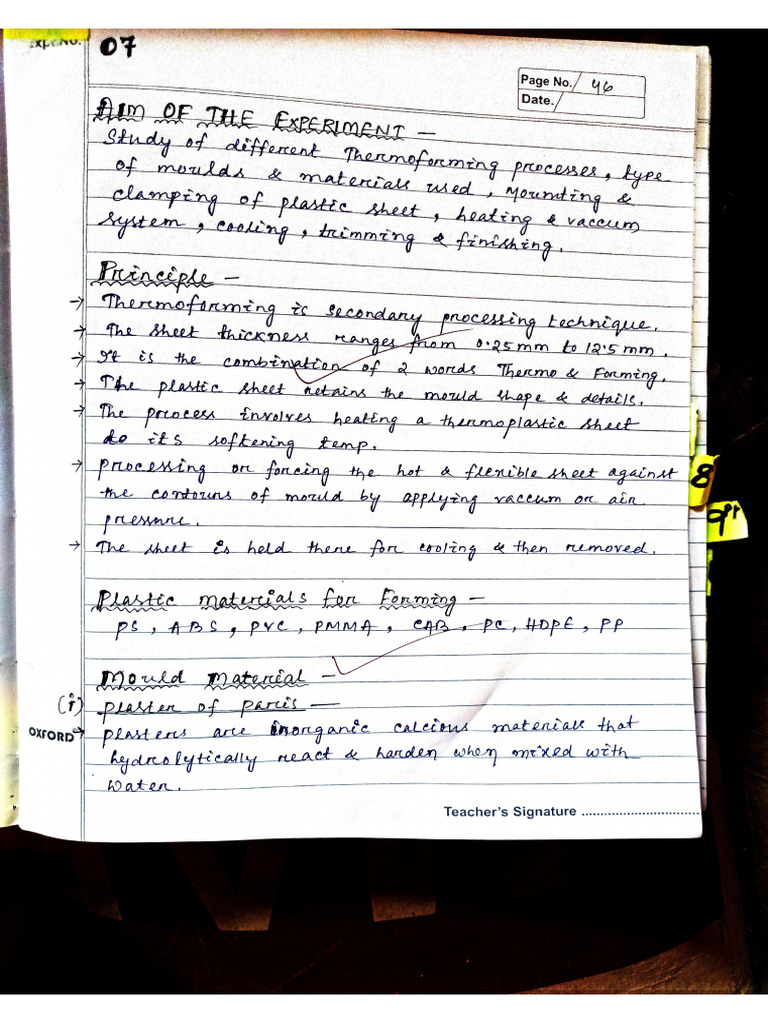 Expt. No. 07
Page No. 46
Date.
AIM OF THE EXPERIMENT -
Study of different Thermoforming processes, type
of moulds & materials used, Mounting &
clamping of plastic sheet, heating & vaccum
system, cooling, trimming & finishing.
Principle -
→ Thermoforming is secondary processing technique.
→ The sheet thickness ranges from 0.25 mm to 12.5 mm.
→ It is the combination of 2 words Thermo & Forming.
→ The plastic sheet retains the mould shape & details.
→ The process involves heating a thermoplastic sheet
to its softening temp.
→ processing or forcing the hot & flexible sheet against
the contours of mould by applying vaccum or air
pressure.
→ The sheet is held there for cooling & then removed.
Plastic materials for Forming -
PS, ABS, PVC, PMMA, CAB, PC, HDPE, PP
Mould Material -
(i) plaster of paris -
OXFORD → plasters are inorganic calcious materials that
hydrolytically react & harden when mixed with
water.
Teacher's Signature ..............................
8
9